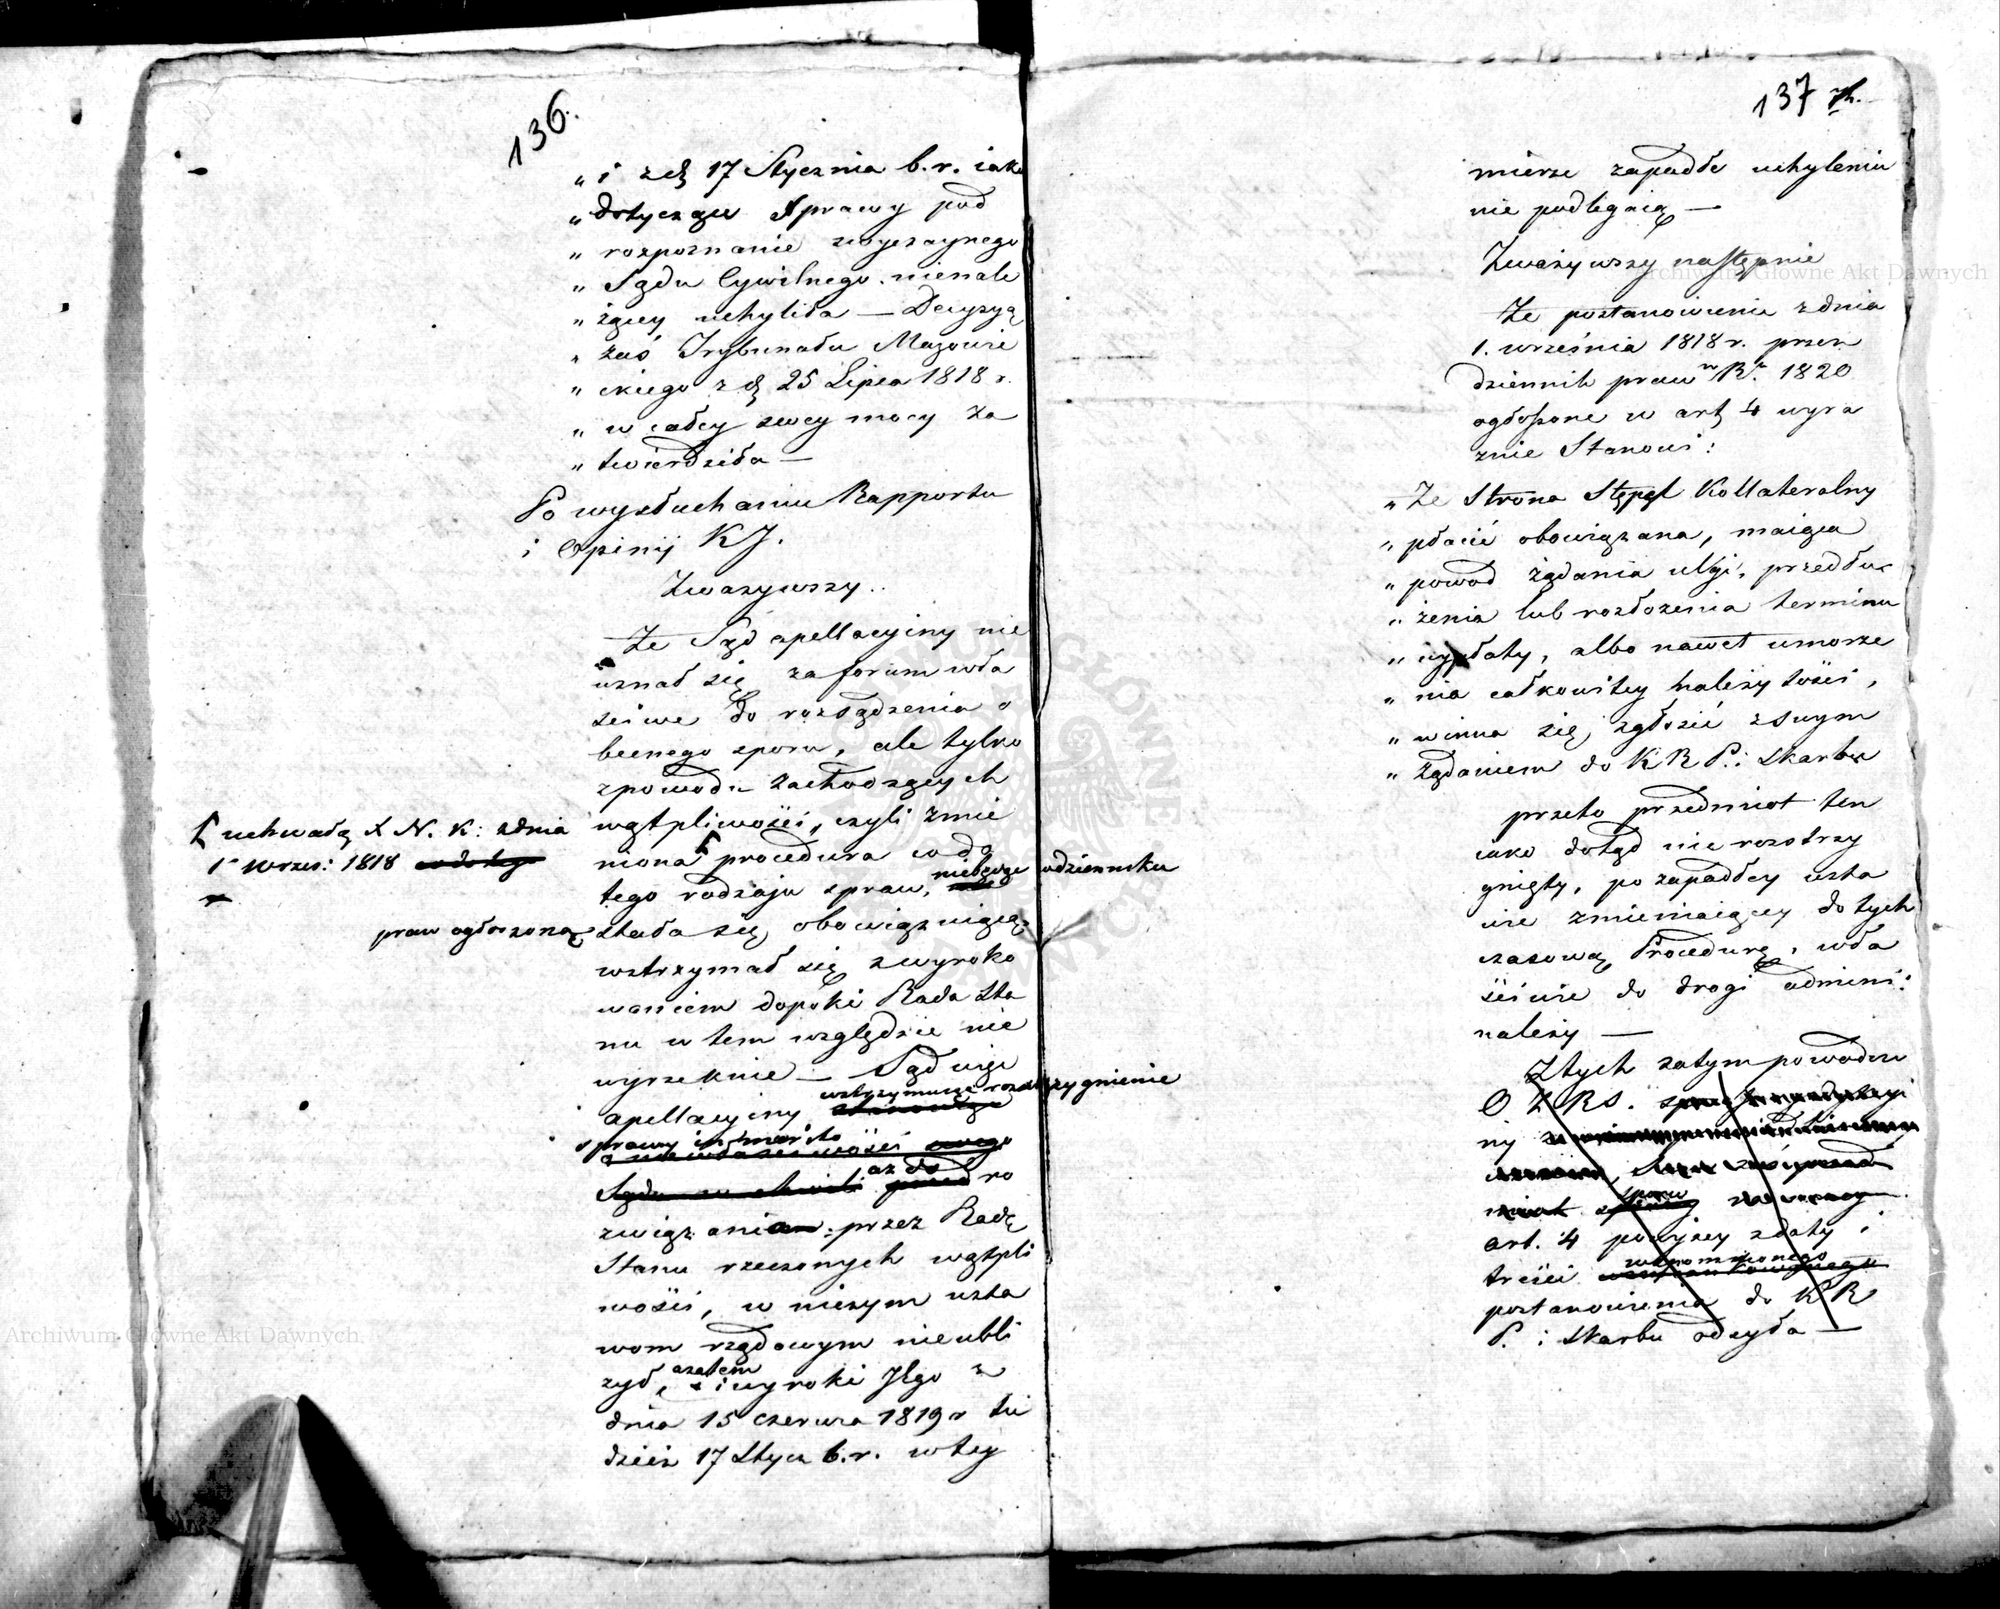 136.
„ i z d. 17 Stycznia b. r. iako
„ dotyczące Sprawy pod
„ rozpoznanie zwyczaynego
„ Sądu Cywilnego nienale
„ żącey uchyliła — Decyzyą
„ zaś Trybunału Mazowie
„ ckiego z d. 25 Lipca 1818 r.
„ w całey swey mocy za
„ twierdziła —
Po wysłuchaniu Rapportu
i Opinij K J.
Zważywszy..
Że Sąd apellacyiny nie
uznał się za forum wła
ściwe do rozsądzenia o
becnego sporu, ale tylko
z powodu zachodzących
wątpliwości, czyli zmie
niona procedura co do
[ uchwałą X N. K: z dnia
1o Wrześ: 1818 co do tego
tego rodzaju spraw, niebędąc w dzienniku
praw ogłoszoną stała się obowięzuiącą
wstrzymał się z wyroko
waniem dopoki Rada Sta
nu w tem względzie nie
wyrzeknie — Sąd więc
apellacyiny wstrzymuiąc rozstrzygnienie
sprawy in merito
aż do ro
związania przez Radę
Stanu rzeczonych wątpli
wości, w niczym usta
wom rządowym nieubli
żył, a zatem i wyroki Jego z
dnia 15 Czerwca 1819 r tu
dzież 17 Stycz b. r. w tey
137
mierze zapadłe uchyleniu
nie podlegaią —
Zważywszy następnie
Że postanowienie z dnia
1. września 1818 r. przez
dziennik praw w R. 1820
ogłoszone w art 4 wyra
znie Stanowi:
„ Że Strona Stępel Kollateralny
„ płacić obowiązana, maiąca
„ powod żądania ulgi, przedłu
„ żenia lub rozłożenia terminu
„ wypłaty, albo nawet umorze
„ nia całkowitey należytości,
„ winna się zgłosić z swym
„ żądaniem do K R P. i Skarbu
przeto przedmiot ten
iako dotąd nie rozstrzy
gnięty, po zapadłey usta
wie zmieniaiącey dotych
czasową Procedurę, wła
ściwie do drogi admini:
należy —
Z tych zatym powodow
O Z R S.
ny
sporu
art. 4 powyżey z daty i
treści wspomnionego
postanowienia do K R
P. i Skarbu odsyła —
Archiwum Główne Akt Dawnych
Archiwum Główne Akt Dawnych